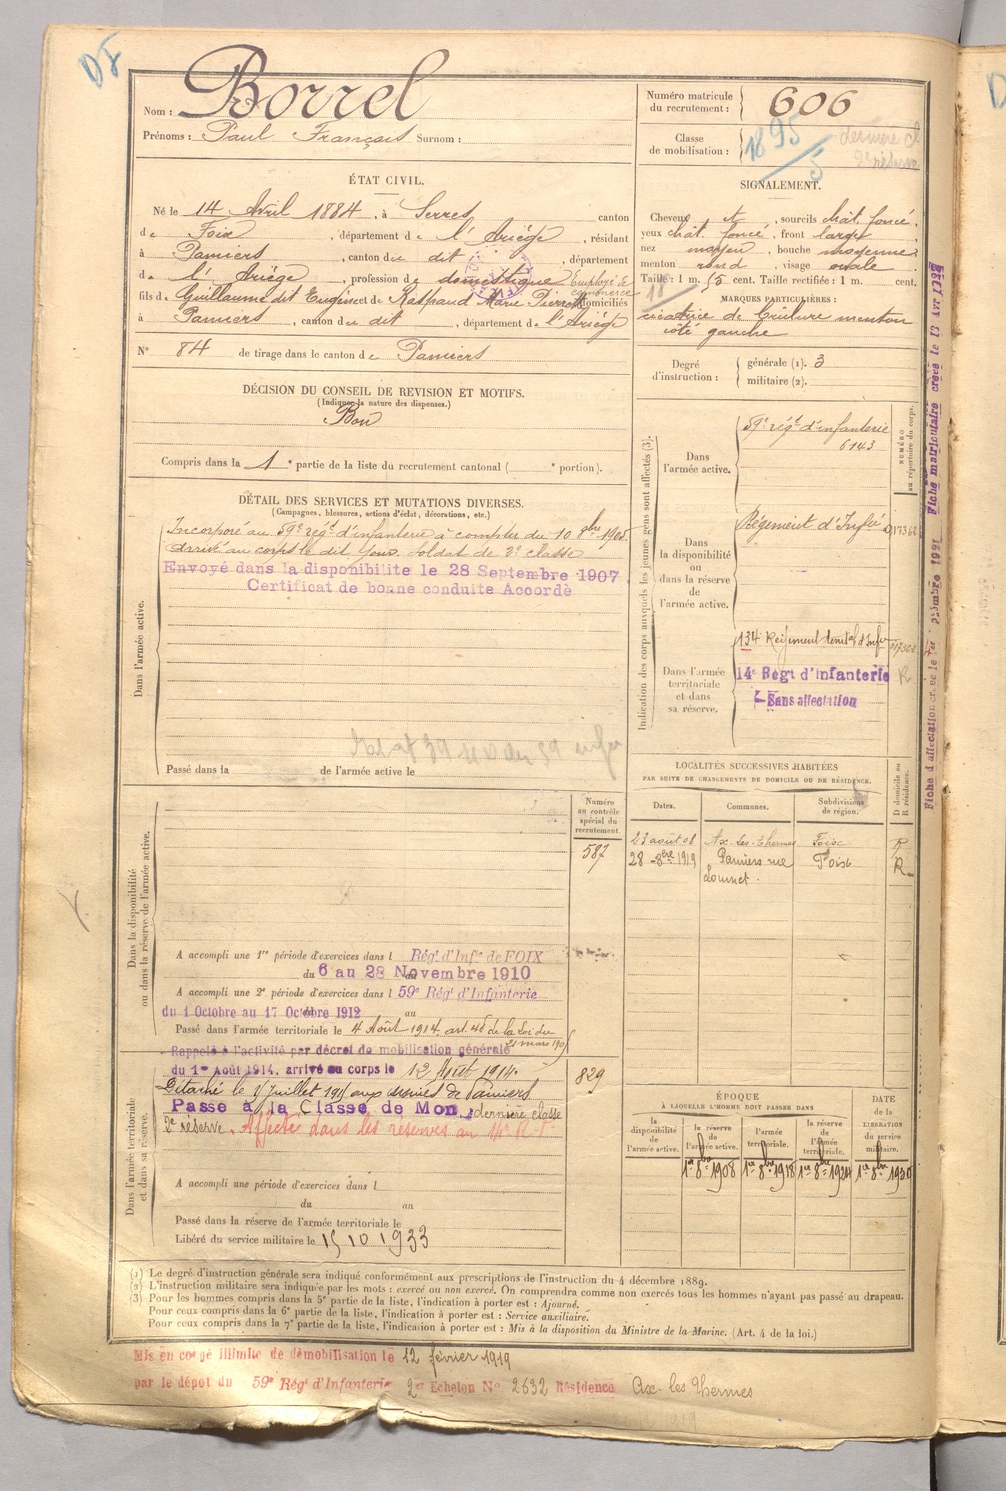 Nom : Borrel
Prénoms : Paul François Surnom :
ÉTAT CIVIL.
Né le 14 Avril 1884, à Serres, canton
de Foix, département de l'Ariège, résidant
à Pamiers, canton du dit, département
de l'Ariège, profession de domestique Employé de commerce
fils de Guillaume dit Eugène et de Raspaud Marie Pierrette domiciliés
à Pamiers, canton du dit, département de l'Ariège
N° 84 de tirage dans le canton de Pamiers
DÉCISION DU CONSEIL DE REVISION ET MOTIFS.
(Indiquer la nature des dispenses.)
Bon
Compris dans la 1e partie de la liste du recrutement cantonal ( e portion).
DÉTAIL DES SERVICES ET MUTATIONS DIVERSES.
(Campagnes, blessures, actions d'éclat, décorations, etc.)
Dans l'armée active.
Incorporé au 59e régt d'infanterie à compter du 10 8bre 1905.
Arrivé au corps le dit jour. Soldat de 2e classe
Envoyé dans la disponibilite le 28 Septembre 1907
Certificat de bonne conduite Accordé
Passé dans la de l'armée active le
Dans la disponibilité
ou dans la réserve de l'armée active.
Numéro
au contrôle
spécial du
recrutement.
587
A accompli une 1re période d'exercices dans l Régt d'Infie de FOIX
du 6 au 28 Novembre 1910
A accompli une 2e période d'exercices dans l 59e Régt d'Infanterie
du 1 Octobre au 17 Octobre 1912 au
Passé dans l'armée territoriale le 4 Août 1914 art. 48 de la loi du
21 mars 1905
Dans l'armée territoriale
et dans sa réserve.
Rappelé à l'activité par décret de mobilisation générale
du 1er Août 1914, arrivé au corps le 12 Août 1914.
829
Détaché le 1 Juillet 1915 aux usines de Pamiers
Passe à la Classe de Mon. dernière classe
2e réserve. Affecté dans les réserves au 14e R.I.
A accompli une période d'exercices dans l
du au
Passé dans la réserve de l'armée territoriale le
Libéré du service militaire le 15 10 1933
Numéro matricule
du recrutement : 606
Classe
de mobilisation : 1895/5 dernière cl
2e réserve
SIGNALEMENT.
Cheveux ct, sourcils chât. foncé,
yeux chât. foncé, front large,
nez moyen, bouche moyenne
menton rond, visage ovale
Taille : 1 m. 55 cent. Taille rectifiée : 1 m. cent.
MARQUES PARTICULIÈRES :
cicatrice de brûlure menton
côté gauche
Degré
d'instruction :
générale (1). 3
militaire (2).
Indication des corps auxquels les jeunes gens sont affectés (3).
NUMÉRO
au répertoire du corps.
Dans
l'armée active.
59e régt d'infanterie
6143
Dans
la disponibilité
ou
dans la réserve
de
l'armée active.
Régiment d'Infie
Dans l'armée
territoriale
et dans
sa réserve.
134 Régiment territal d'Infie
14e Régt d'infanterie R
Sans affectation
LOCALITÉS SUCCESSIVES HABITÉES
PAR SUITE DE CHANGEMENTS DE DOMICILE OU DE RÉSIDENCE.
Dates. Communes. Subdivisions
de région. D domicile ou
R résidence.
23 août 08 Ax-les-Thermes Foix R
28 8bre 1919 Pamiers rue Foix R
Loumet.
ÉPOQUE
À LAQUELLE L'HOMME DOIT PASSER DANS
DATE
de la
LIBÉRATION
du service
militaire.
la
disponibilité
de
l'armée active.
la réserve
de
l'armée active.
l'armée
territoriale.
la réserve
de
l'armée
territoriale.
1er 8bre 1908 1er 8bre 1918 1er 8bre 1924 1er 8bre 1930
(1) Le degré d'instruction générale sera indiqué conformément aux prescriptions de l'instruction du 4 décembre 1889.
(2) L'instruction militaire sera indiquée par les mots : exercé ou non exercé. On comprendra comme non exercés tous les hommes n'ayant pas passé au drapeau.
(3) Pour les hommes compris dans la 5e partie de la liste, l'indication à porter est : Ajourné.
Pour ceux compris dans la 6e partie de la liste, l'indication à porter est : Service auxiliaire.
Pour ceux compris dans la 7e partie de la liste, l'indication à porter est : Mis à la disposition du Ministre de la Marine. (Art. 4 de la loi.)
Mis en congé illimité de démobilisation le 12 février 1919
par le dépot du 59e Régt d'Infanterie 2er Echelon N° 2632 Résidence Ax-les-Thermes